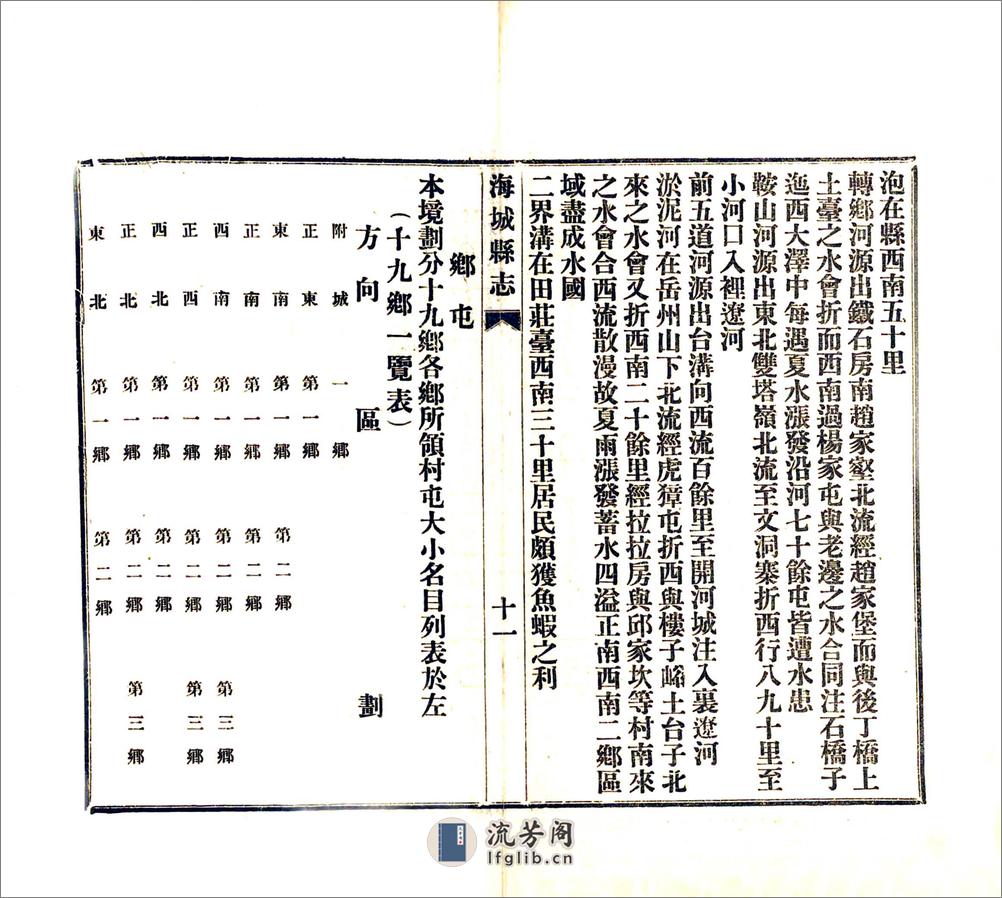 泡在縣西南五十里
轉鄉河源出鐵石房南趙家壑北流經趙家堡而與後丁橋上
土臺之水會折而西南過楊家屯與老邊之水合同注石橋子
迤西大澤中每遇夏水漲發沿河七十餘屯皆遭水患
鞍山河源出東北雙塔嶺北流至文洞寨折西行八九十里至
小河口入裡遼河
前五道河源出台溝向西流百餘里至開河城注入裏遼河
淤泥河在岳州山下北流經虎獐屯折西與樓子峪土台子北
來之水會又折西南二十餘里經拉拉房與邱家坎等村南來
之水會合西流散漫故夏雨漲發蓄水四溢正南西南二鄉區
域盡成水國
二界溝在田莊臺西南三十里居民頗獲魚蝦之利
海城縣志 十一
鄉屯
本境劃分十九鄉各鄉所領村屯大小名目列表於左
（十九鄉一覽表）
方向 區劃
附城 一鄉
正東 第一鄉
東南 第一鄉 第二鄉
正南 第一鄉 第二鄉
西南 第一鄉 第二鄉 第三鄉
正西 第一鄉 第二鄉 第三鄉
西北 第一鄉 第二鄉
正北 第一鄉 第二鄉 第三鄉
東北 第一鄉 第二鄉
流芳阁
lfglib.cn